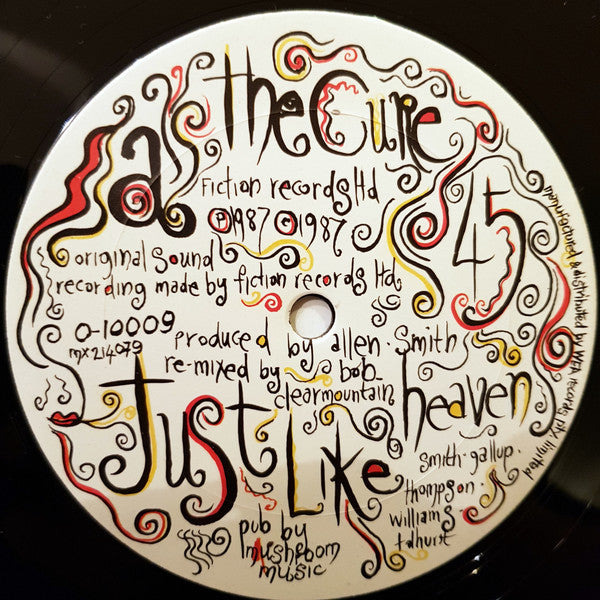 a
the Cure
Fiction records ltd
Ⓟ1987 Ⓒ1987
original sound
recording made by fiction records ltd
45
0-10009
mx214079
produced by allen. Smith
re-mixed by bob
clearmountain
Just Like heaven
smith. gallup.
thompson.
williams
tolhurst
pub by
mushroom
music
manufactured & distributed by WEA records pty limited